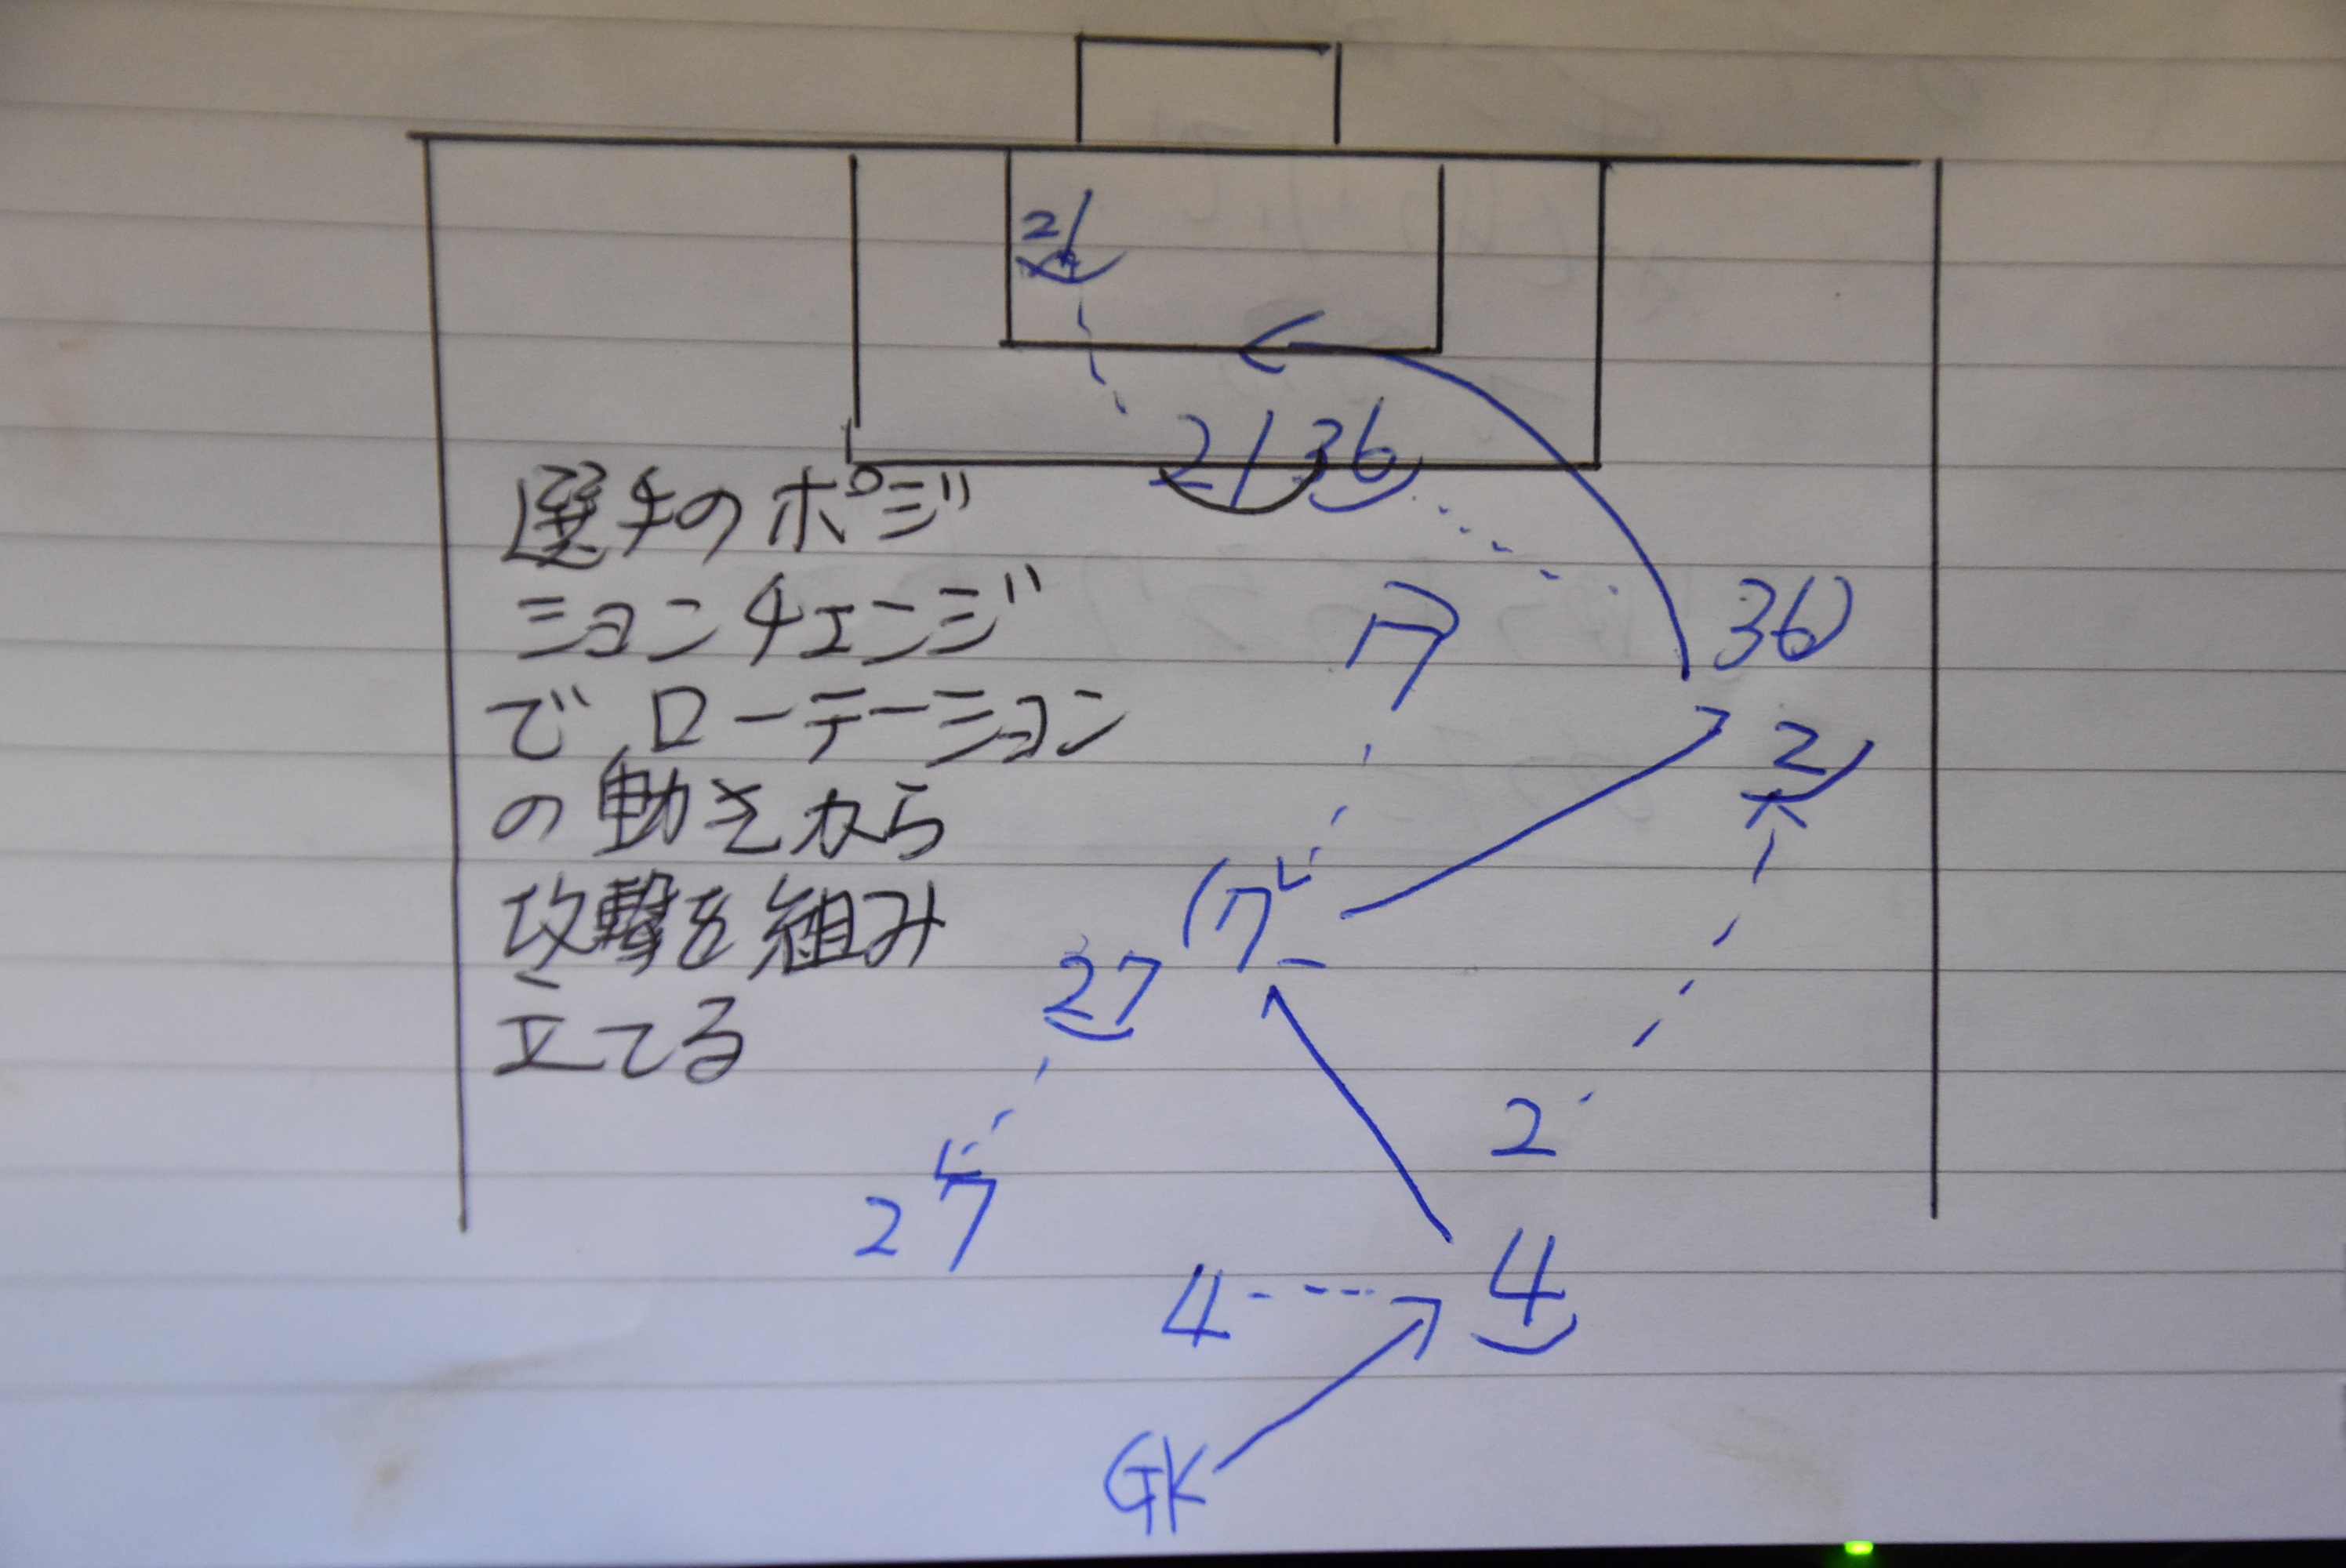 21
21 36
選手のポジ
ションチェンジ
でローテーション
の動きから
攻撃を組み
立てる
17
36
2
17
27
2
27
4
4
GK